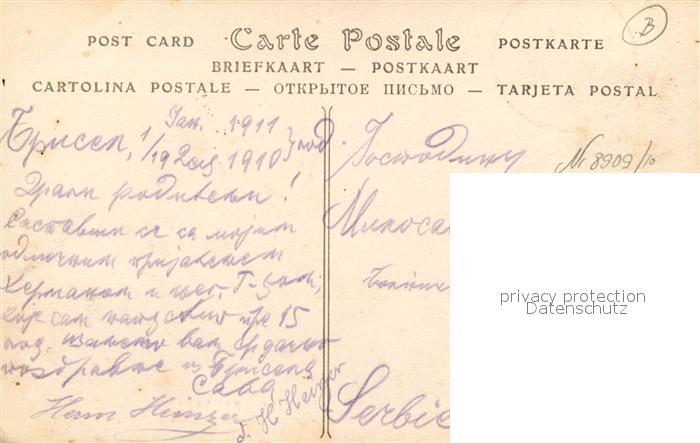 POST CARD Carte Postale POSTKARTE
BRIEFKAART — POSTKAART
CARTOLINA POSTALE — ОТКРЫТОЕ ПИСЬМО — TARJETA POSTAL
B
Брисел, 1 Јан. 1911
/19 Дец 1910 год.
Драги родитељи!
Саставши се са мојим
одличним пријатељем
Херманом и
сам познао пре 15
год. вам срдачно
поздравље из Брисела
Сава
Herm Heinzer
F. H Heinzer
Господину
№ 8909/10
Serbie
privacy protection
Datenschutz